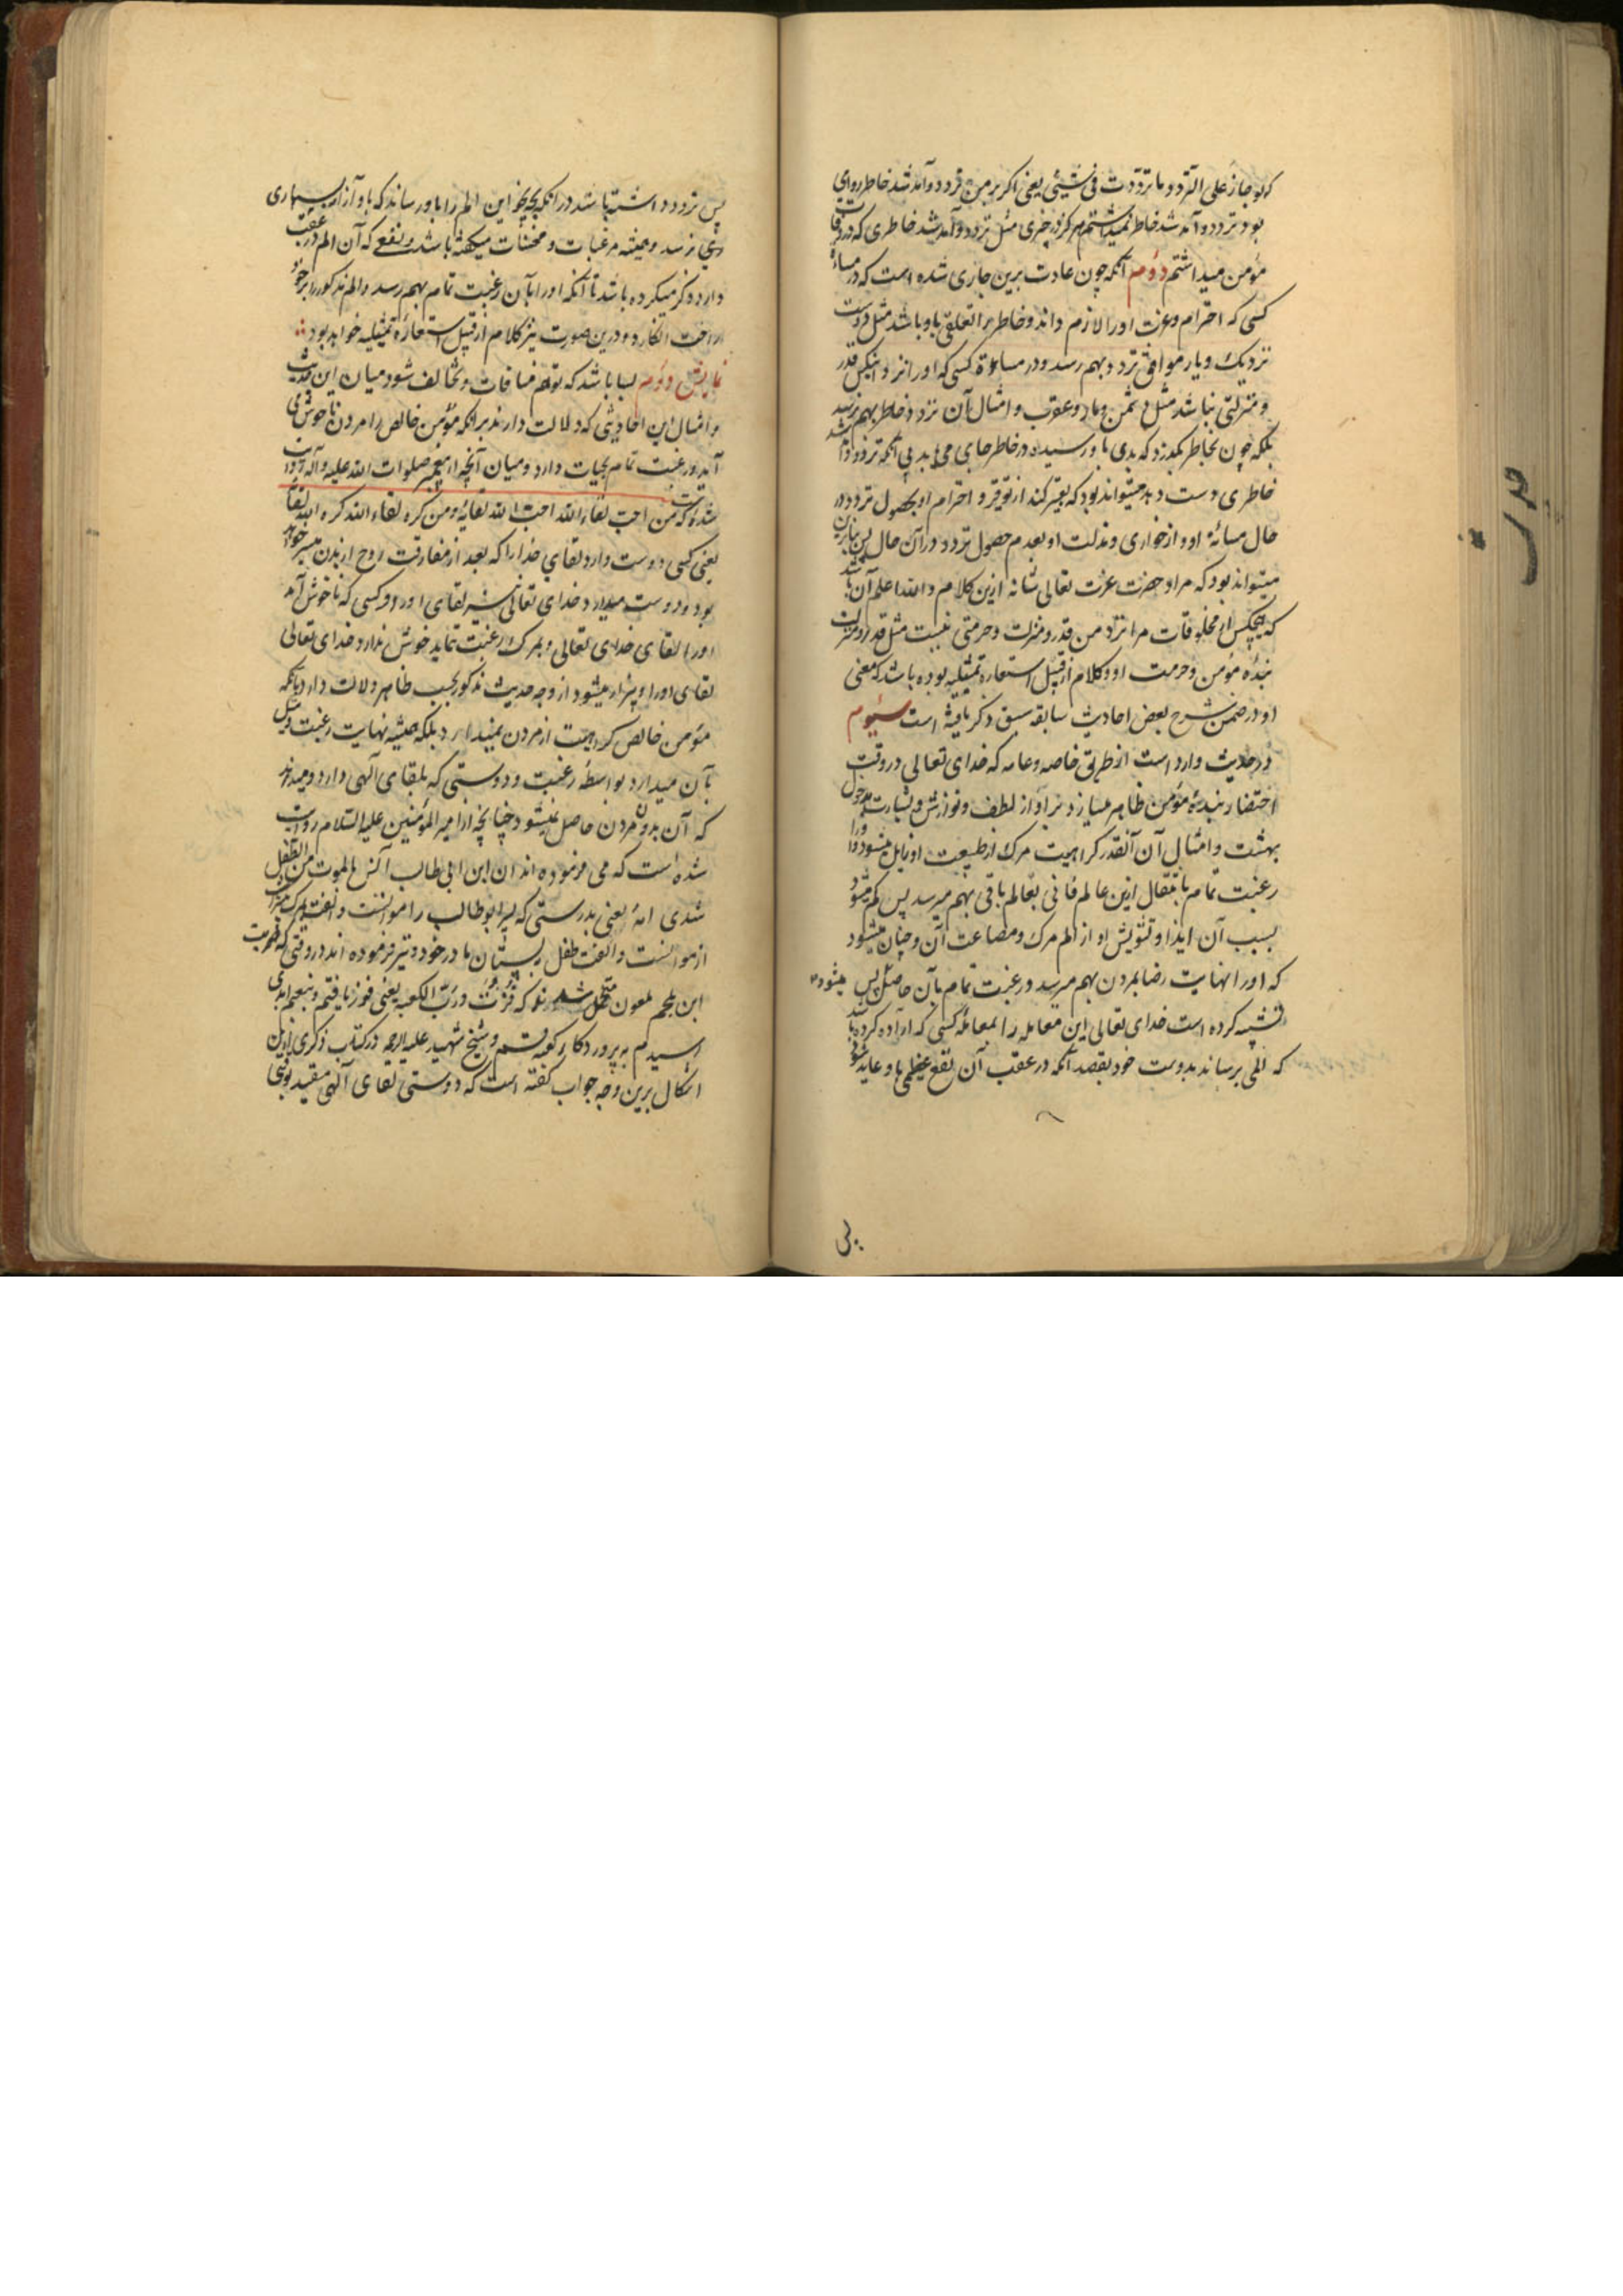 که لو جاز علی التردد ما ترددت فی شیئی یعنی اگر بر من تردد و آمد شد خاطر روای
بود تردد و آمد شد خاطر نمیداشتم هرگز در چیزی مثل تردد و آمد شد خاطری که در وفات
مؤمن میداشتم دوم آنکه چون عادت برین جاری شده است که در مساءة
کسی که احترام و عزت او را لازم داند و خاطر را تعلق باو باشد مثل دوست
نزدیک و یار موافق تردد بهم رسد و در مساءة کسی که او را نزد اینکس قدر
و منزلتی نباشد مثل دشمن و مار و عقرب و امثال آن تردد خاطر بهم نرسد
بلکه چون بخاطر بگذرد که بدی باو رسیده در خاطر جای می یابد بی آنکه تردد و آمد شد
خاطری دست دهد میتواند بود که تعبیر کند از توقیر و احترام او بحصول تردد در
حال مسائه او و از خواری و مذلت او بعدم حصول تردد در آن حال پس بنابرین
میتواند بود که مراد حضرت عزت تعالی شانه ازین کلام و الله اعلم آن باشد
که هیچکس از مخلوقات مرا نزد من قدر و منزلت و حرمتی نیست مثل قدر و منزلت
بنده مؤمن و حرمت او و کلام از قبیل استعاره تمثیلیه بوده باشد که معنی
او در ضمن شرح بعض احادیث سابقه سبق ذکر یافته است سیوم
در حدیث وارد است از طریق خاصه و عامه که خدای تعالی در وقت
احتضار بنده مؤمن ظاهر میسازد بر او از لطف و نوازش و بشارت بدخول
بهشت و امثال آن آنقدر که کراهیت مرگ از طبیعت او زایل میشود و او را
رغبت تمام بانتقال ازین عالم فانی بعالم باقی بهم میرسد پس کم میشود
بسبب آن ایذا و تشویش او از الم مرگ و مصاعب آن و چنان میشود
که او را نهایت رضا بمردن بهم میرسد و رغبت تمام بآن حاصل میشود پس
تشبیه کرده است خدای تعالی این معامله را بمعامله کسی که اراده کرده باشد
که المی برساند بدوست خود بقصد آنکه در عقب آن نفع عظیمی باو عاید شود
پس
حدیث
پس تردد داشته باشد در آنکه بچه نحو این الم را باو رساند که باو آزار بسیاری
نرسد و همیشه مرغبات و محسنات میگفته باشد و نفعی که آن الم در عقب
دارد ذکر میکرده باشد تا آنکه او را بآن رغبت تمام بهم رسد و الم مذکور را بر خود
راحت انگارد و درین صورت نیز کلام از قبیل استعاره تمثیلیه خواهد بود
نمایش دوم بسا باشد که توهم منافات و تخالف شود میان این حدیث
و امثال این احادیثی که دلالت دارند بر آنکه مؤمن خالص را مردن ناخوش می
آید و رغبت تمام بحیات دارد و میان آنچه از پیغمبر صلوات الله علیه و آله روایت
شده است که من احب لقاء الله احب الله لقائه و من کره لقاء الله کره الله لقائه
یعنی کسی دوست دارد لقای خدا را که بعد از مفارقت روح از بدن میسر خواهد
بود دوست میدارد خدای تعالی نیز لقای او را و کسی که ناخوش آمد
او را لقای خدای تعالی و بمرگ رغبت ننماید خوش ندارد خدای تعالی
لقای او را و بیزار میشود از و چه حدیث مذکور بحسب ظاهر دلالت دارد بآنکه
مؤمن خالص کراهیت از مردن نمیدارد بلکه همیشه نهایت رغبت و میل
بآن میدارد بواسطه رغبت و دوستی که بلقای الهی دارد و میداند
که آن بدون مردن حاصل نمیشود چنانچه از امیر المؤمنین علیه السلام روایت
شده است که می فرموده اند ان ابن ابی طالب آنس بالموت من الطفل
بثدی امه یعنی بدرستی که پسر ابوطالب را موانست و الفت بمرگ بیشتر است
از موانست و الفت طفل بپستان مادر خود و نیز فرموده اند در وقتی که ضربت
ابن ملجم ملعون متحمل شدند که فزت و رب الکعبه یعنی فوز یافتم و بنعیم ابدی
رسیدم به پروردگار کعبه قسم و شیخ شهید علیه الرحمه در کتاب ذکری ازین
اشکال برین وجه جواب گفته است که دوستی لقای الهی مقید بوقتی